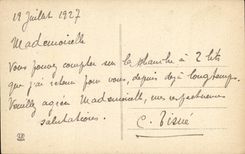 19 Juillet 1927
Mademoiselle
Vous pouvez compter sur la chambre à 2 lits
que j'ai retenu pour vous, depuis déjà longtemps.
Veuillez agréer Mademoiselle, mes respectueuses
salutations.
C. Tisné